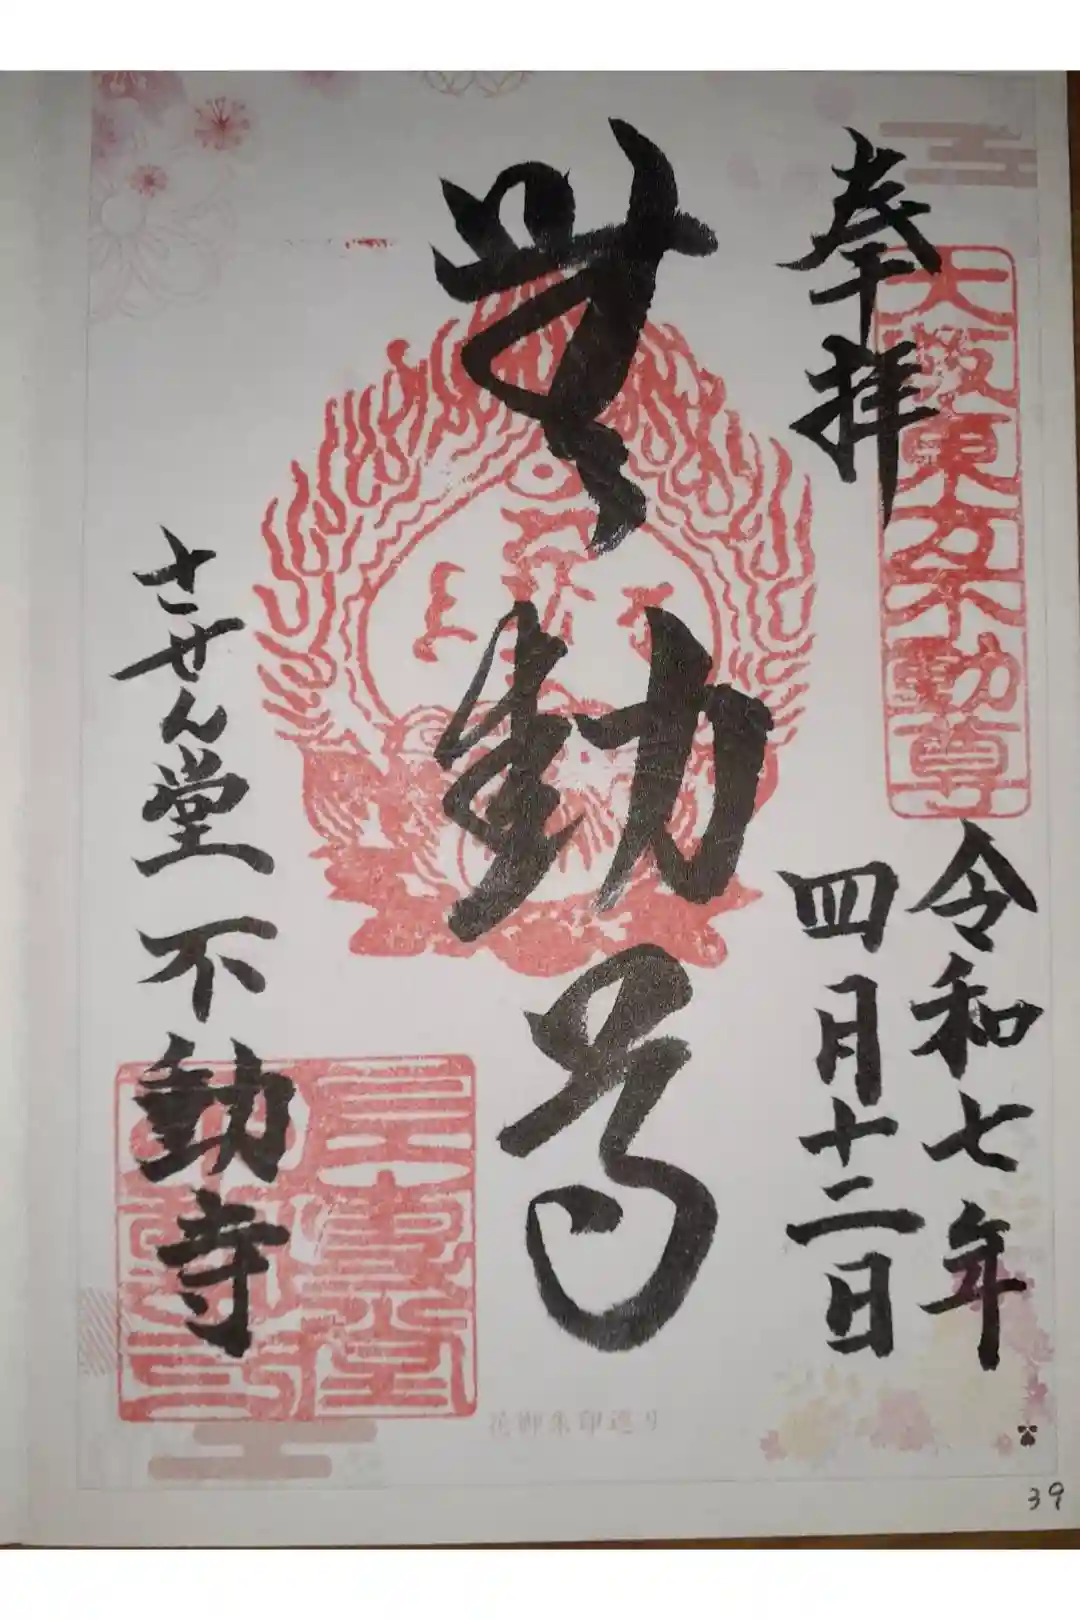 奉拝
大阪東方不動尊
令和七年
四月十二日
無動尊
させん堂不動寺
花御朱印巡り
39